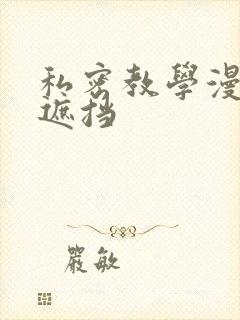 私密教學漫
遮挡
嚴敏